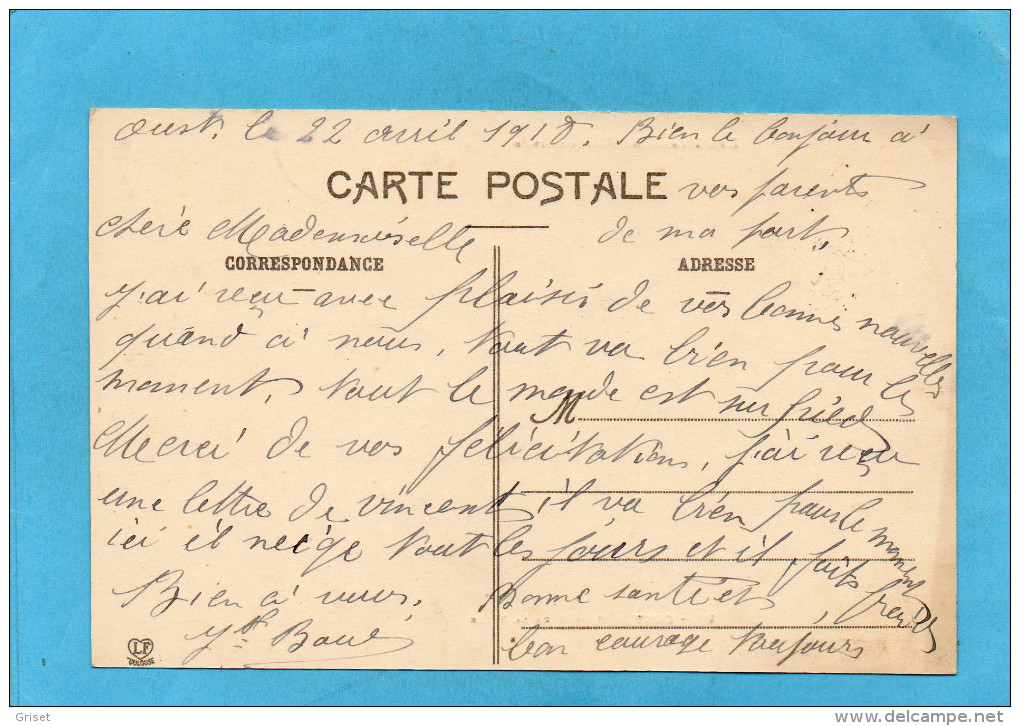 Oust, le 22 avril 1918. Bien le bonjour à
CARTE POSTALE vos parents
chère Mademoiselle de ma part,
CORRESPONDANCE ADRESSE
j'ai reçu avec plaisir de vos bonnes nouvelles
quand à nous, tout va bien pour le
moment, tout le monde est sur pied
M
Merci de vos félicitations, j'ai reçu
une lettre de vincent il va bien pour le moment
ici il neige tout les jours et il fait froid
Bien à vous, Bonne santé et
Bové bon courage toujours
LF
TOULOUSE
Griset
delcampe.net